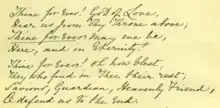 Thine for Ever! God of Love,
Hear us from Thy Throne above;
Thine for Ever may we be,
Here, and in Eternity!
Thine for Ever! oh how blest,
They who find in Thee their rest;
Saviour, Guardian, Heavenly Friend,
O defend us to the End.